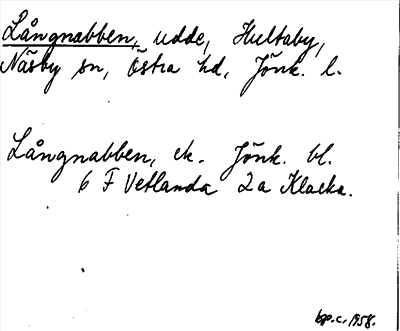 Långnabben, udde, Hultaby,
Näsby sn, Östra hd, Jönk. l.
Långnabben, ek. Jönk. bl.
6 F Vetlanda 2a Klacka.
bgp.c. 1958.